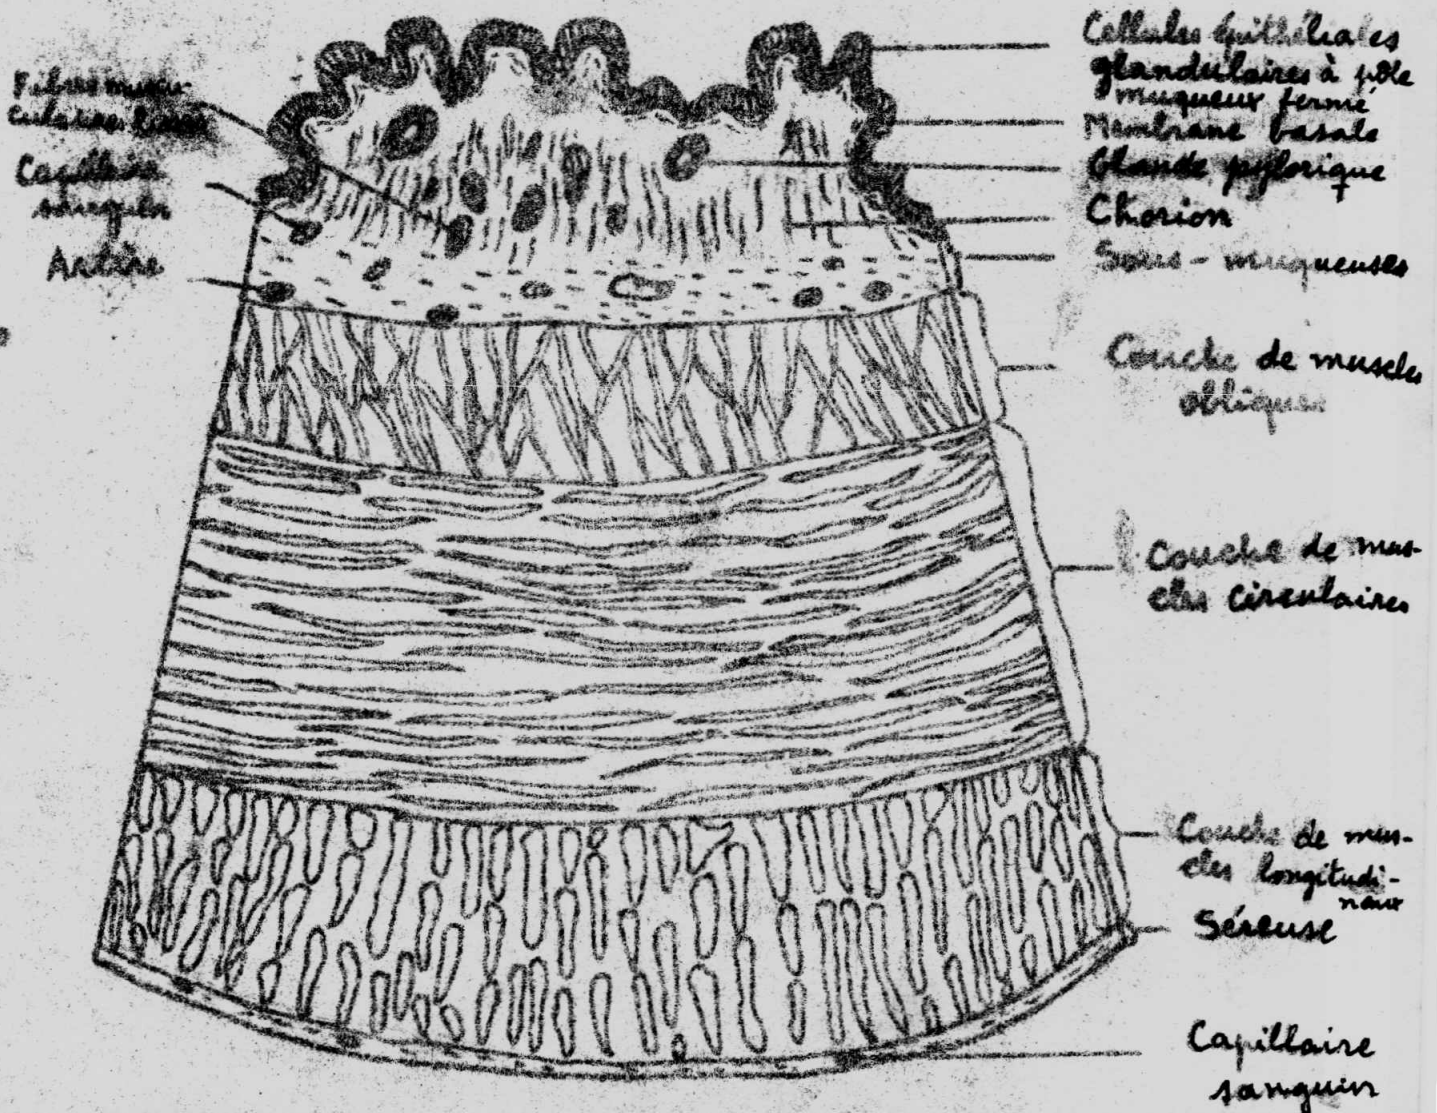 Fibres muscu-
culaires lisses
Capillaire
sanguin
Artère
Cellules épithéliales
glandulaires à pôle
muqueux fermé
Membrane basale
Glande pylorique
Chorion
Sous-muqueuses
Couche de muscles
obliques
Couche de mus-
cles circulaires
Couche de mus-
cles longitudi-
naux
Séreuse
Capillaire
sanguin